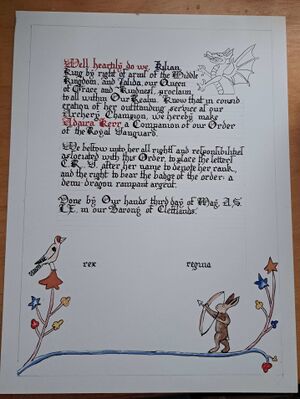 Well heartily do we, Kilian,
King by right of arms of the Middle
Kingdom, and Jalida, our Queen
of Grace and Kindness, proclaim
to all within Our Realm. Know that in consid
eration of her outstanding service as our
Archery Champion, we hereby make
Adaira Kerr a Companion of our Order
of the Royal Vanguard.
We bestow unto her all rights and responsibilities
associated with this Order, to place the letters
C.R.V. after her name to denote her rank,
and the right to bear the badge of the order: a
demi-dragon rampant argent.
Done by Our hands third day of May, A.S.
LX, in our Barony of Cleftlands.
rex
regina